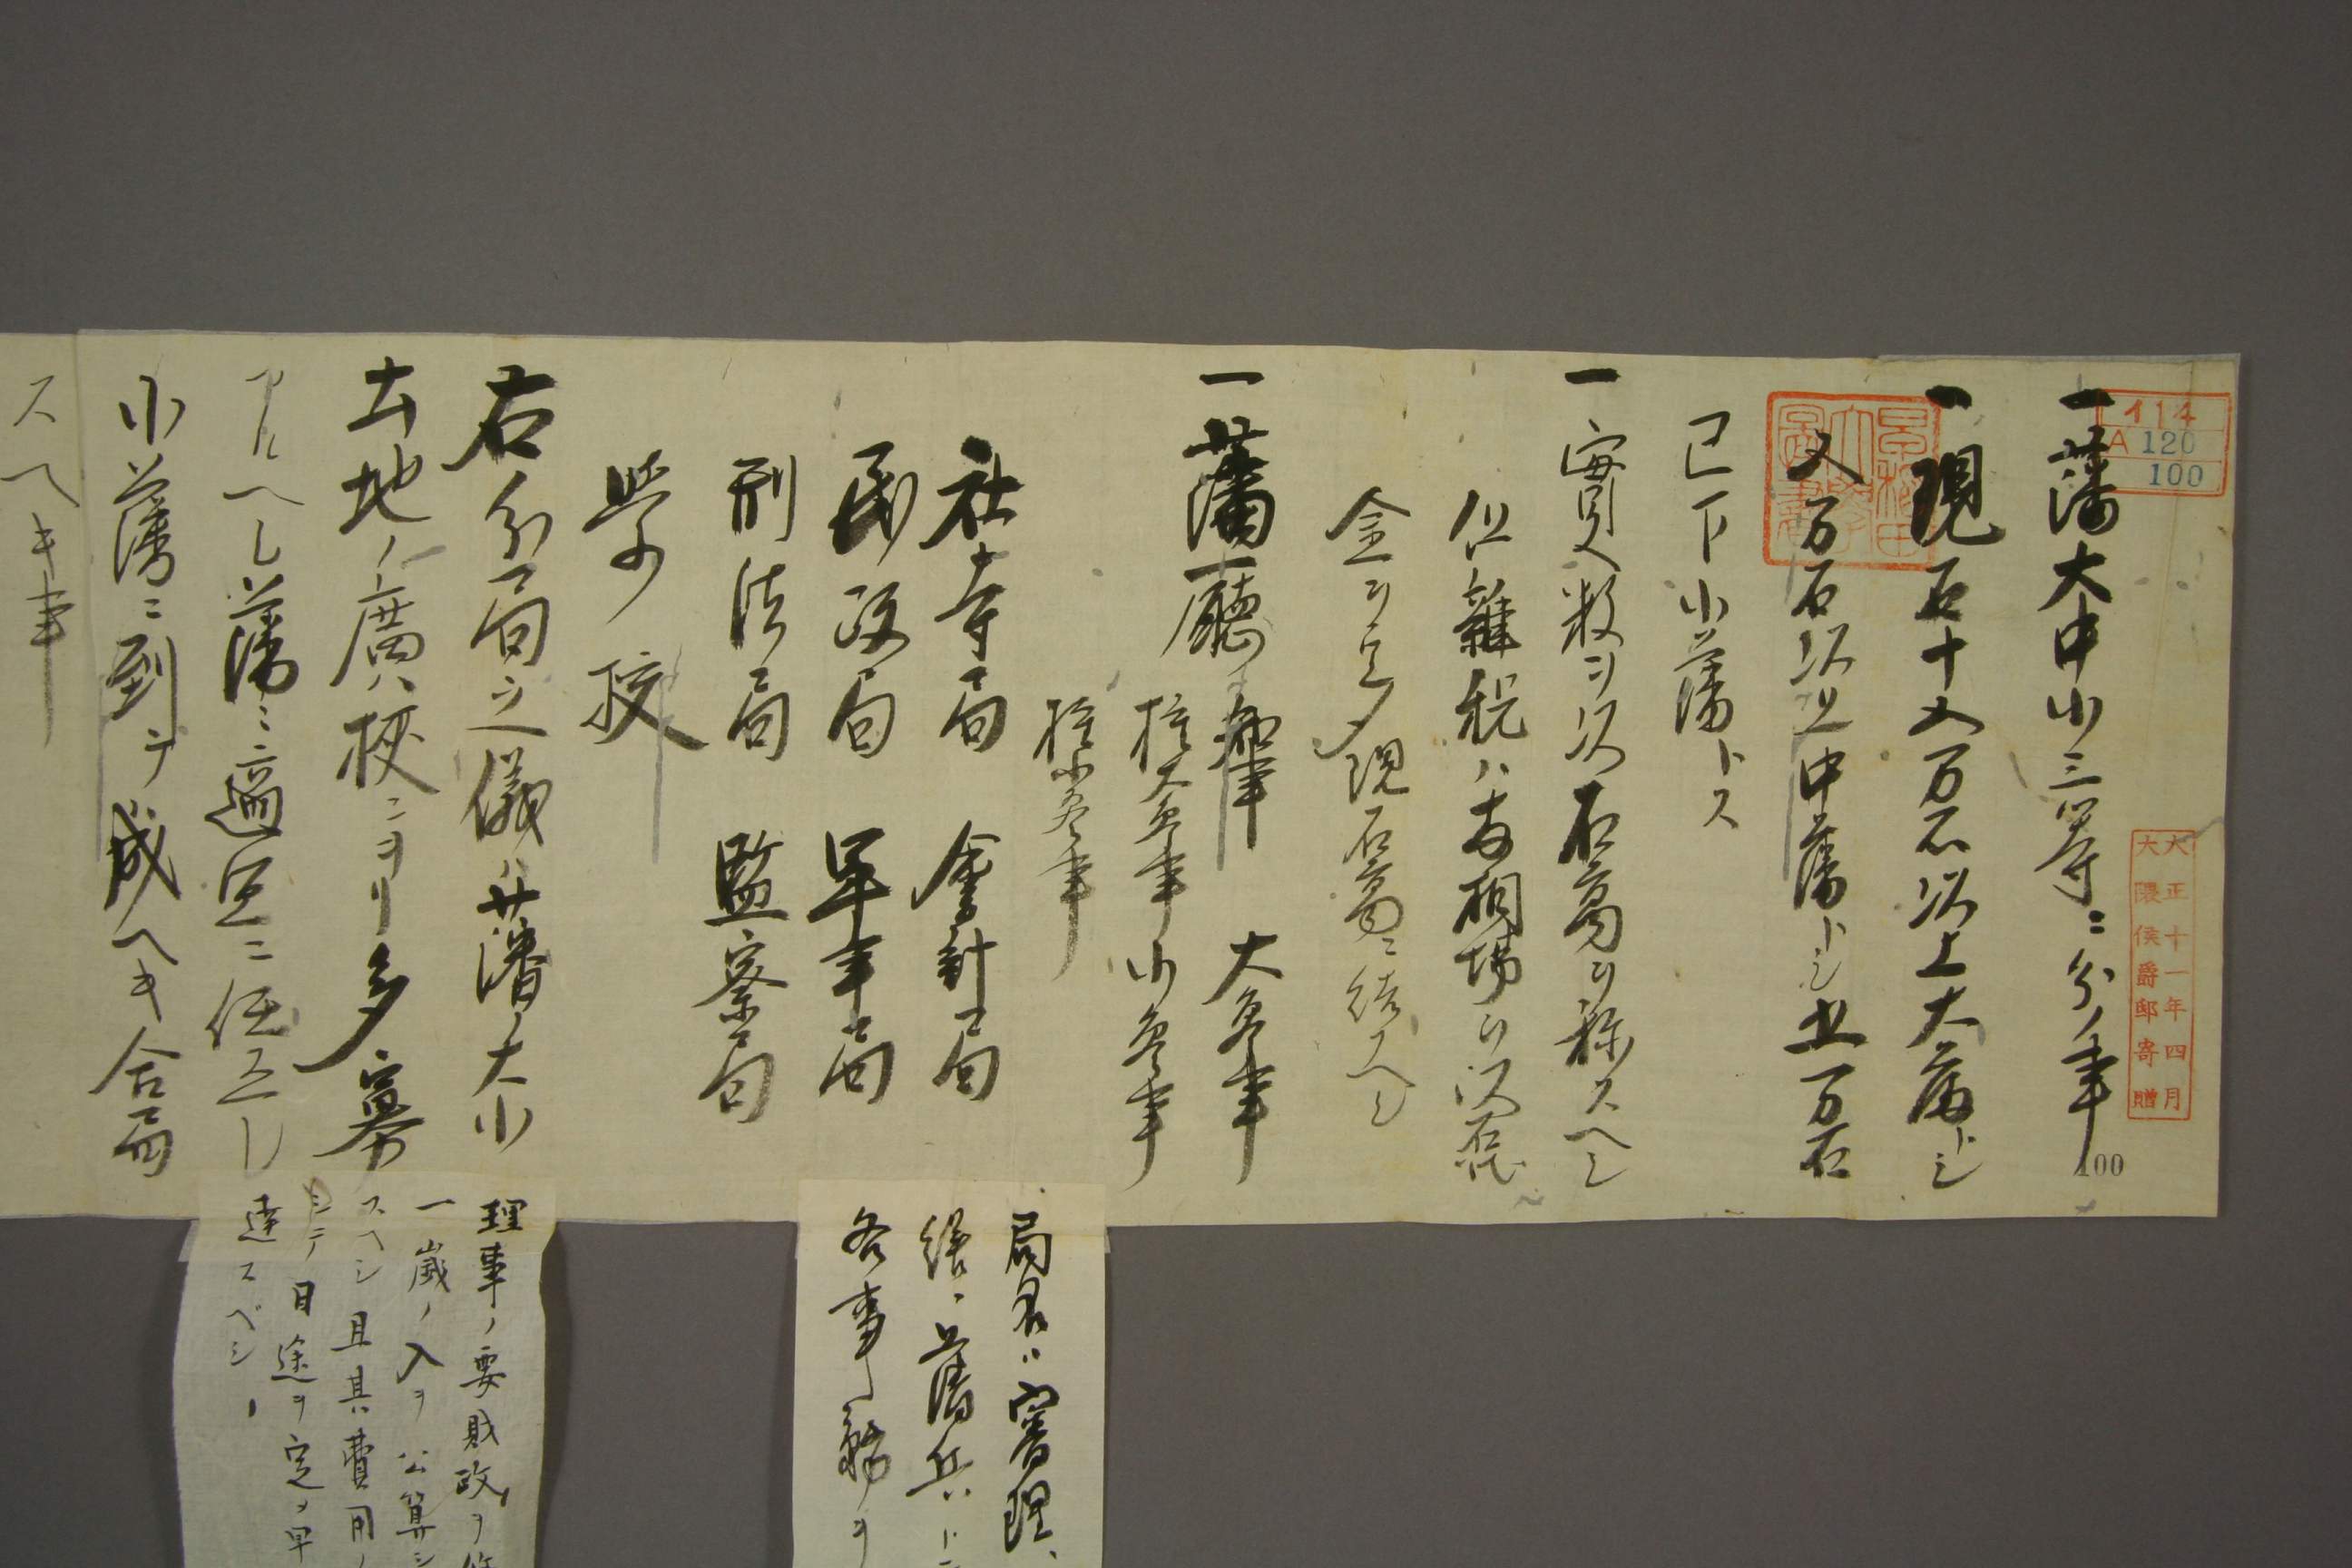 イ14
A 120
100
大正十一年四月
大隈侯爵邸寄贈
100
一藩大中小三等ニ分ノ事
一現石十五万石以上大藩トシ
又万石以上中藩トシ五万石
已下小藩トス
一實入数ヲ以石高ヲ称スヘシ
但雜税ハ相場ヲ以石代
金ヲ定メ現石高ニ結フヘシ
一藩廳 知事 大参事
権大参事 小参事
権小参事
社寺局 會計局
民政局 軍事局
刑法局 監察局
學校
右分局之儀ハ藩ノ大小
土地ノ廣狭ニヨリ多寡
アルヘシ藩ニ適宜ニ任
小藩ニ到テ成ヘキ合局
スヘキ事
局名ハ審理、
藩兵
各事務ヲ
理事ノ要財政ヲ
一歳ノ入ヲ公算シ
スヘシ且其費用ノ
シテ目途ヲ定メ早
達スベシ